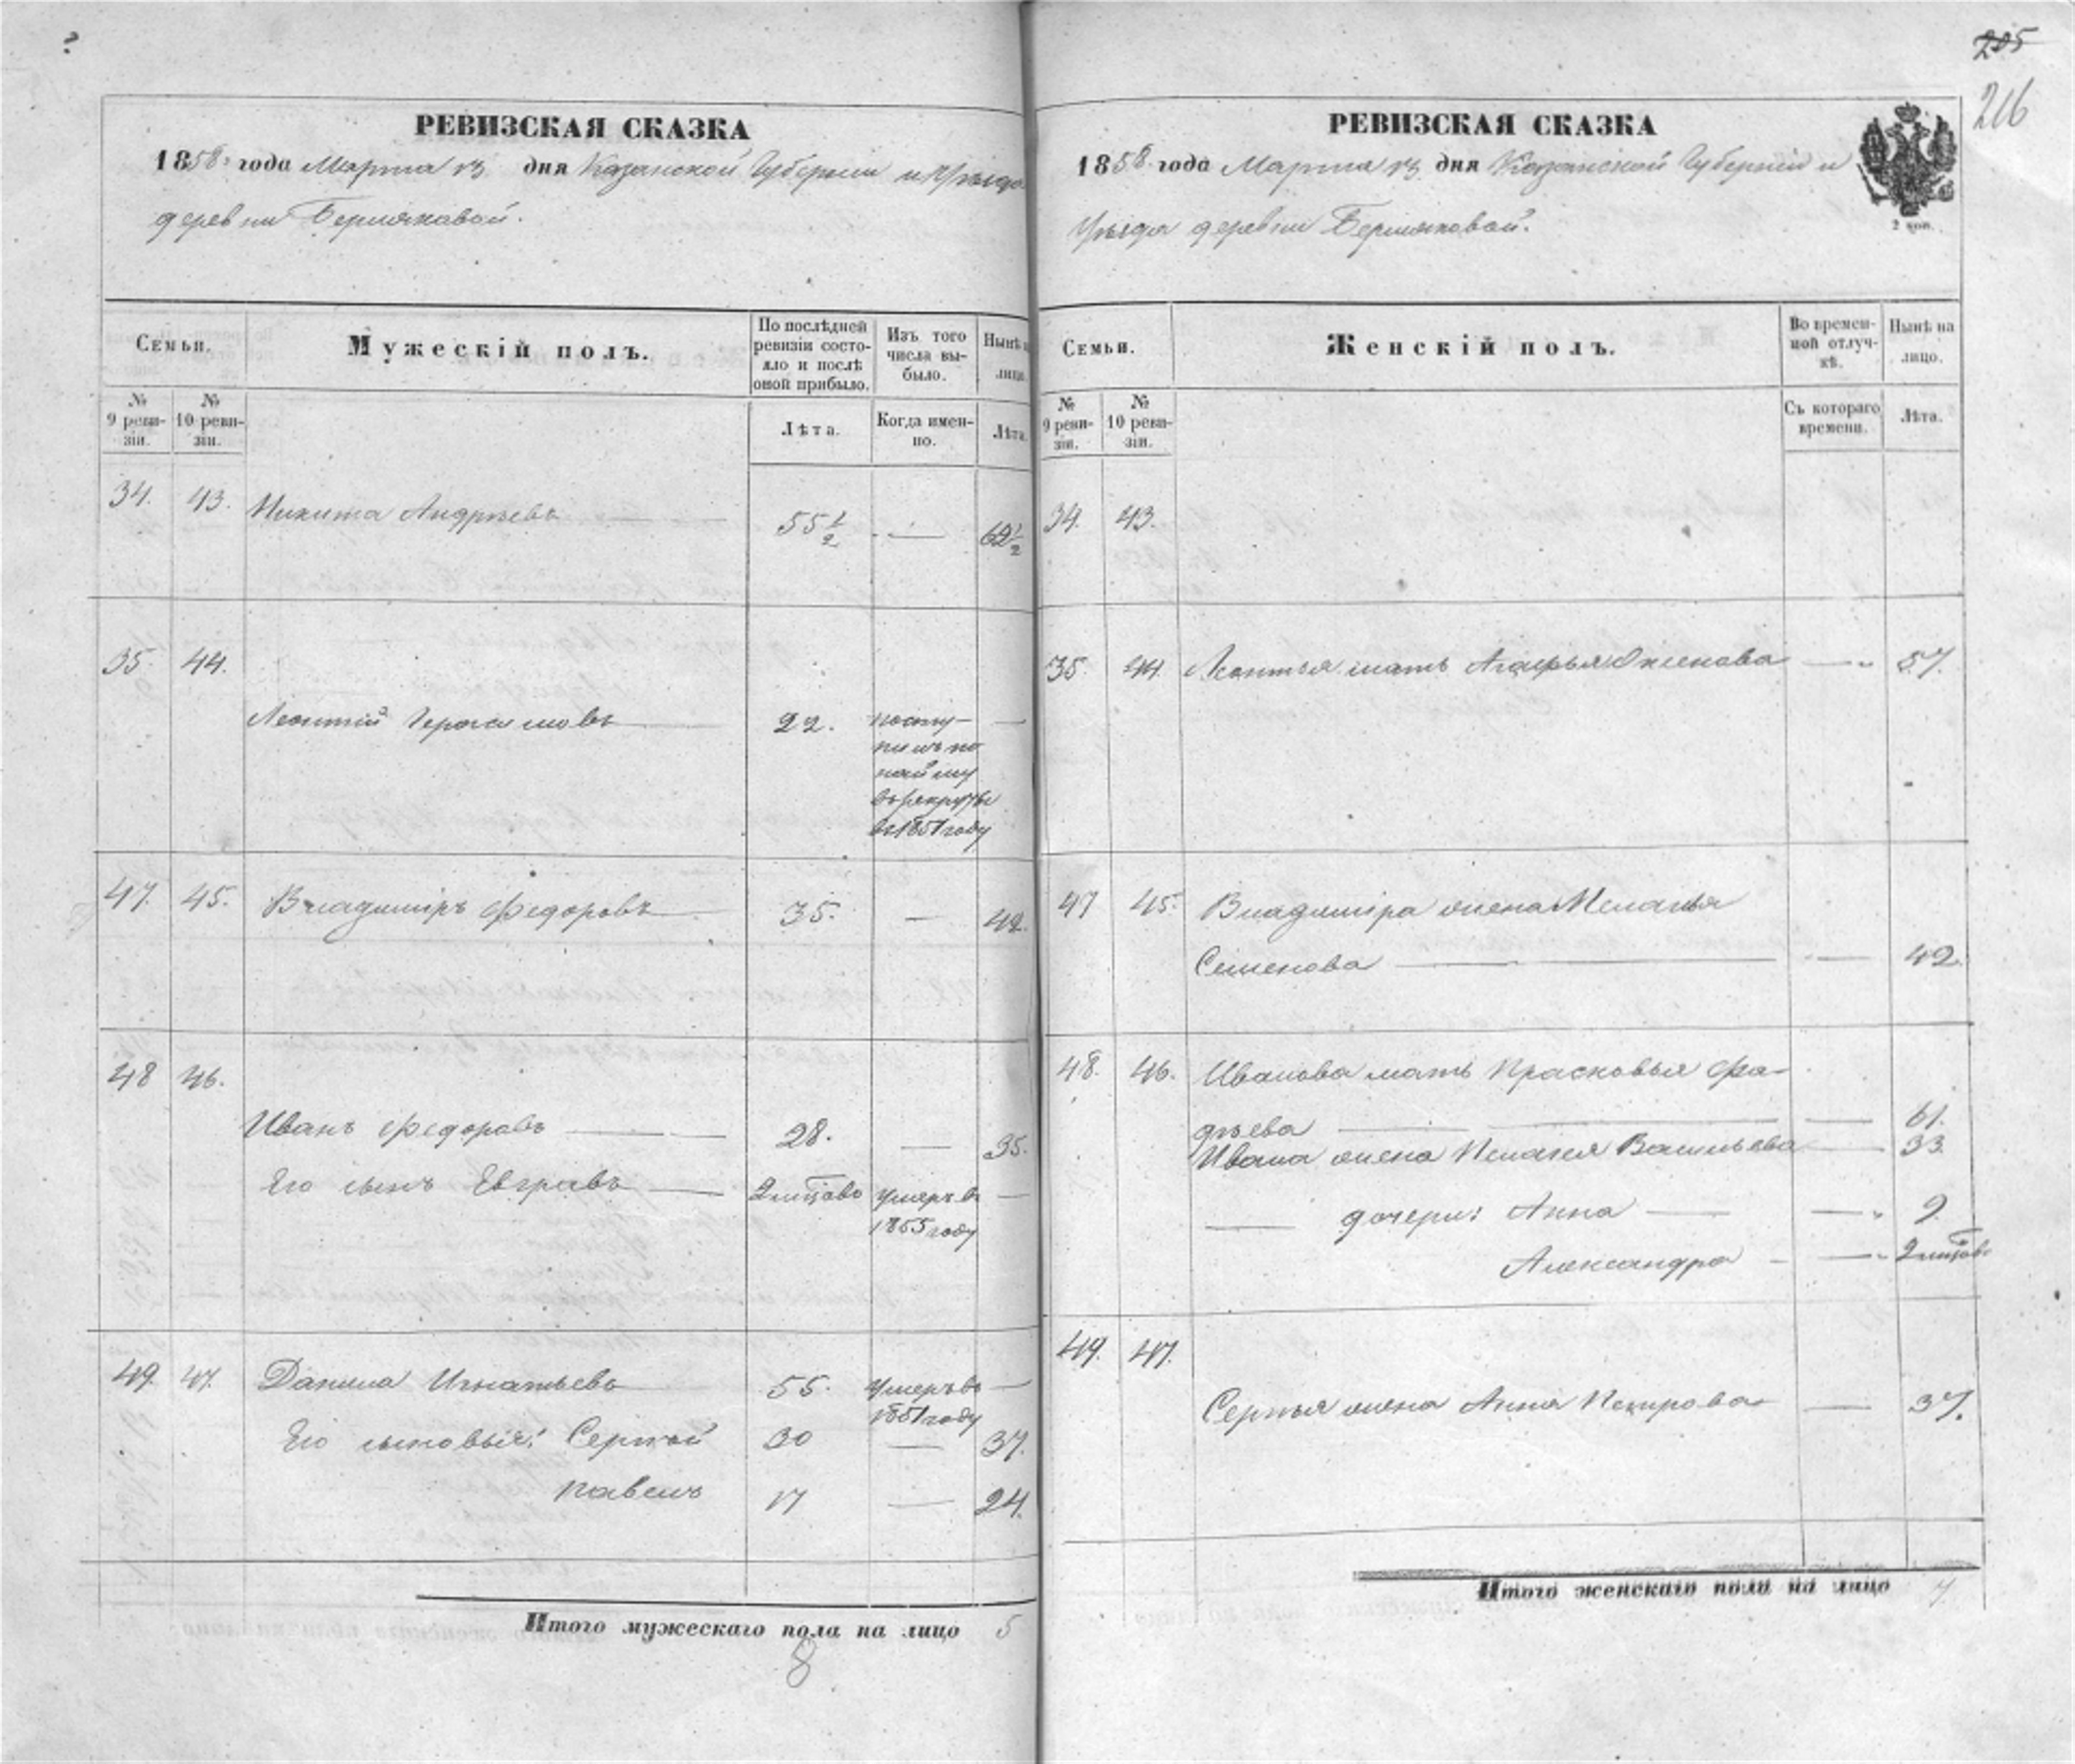 ?
РЕВИЗСКАЯ СКАЗКА
1858 года Марта 13 дня Казанской Губернии и Уѣзда
деревни Бермяковой.
Семьи.
Мужескій полъ.
По послѣдней ревизіи состояло и послѣ оной прибыло.
Изъ того числа выбыло.
Нынѣ на лицо.
№ 9 ревизіи.
№ 10 ревизіи.
Лѣта.
Когда именно.
Лѣта.
34. 43. Никита Андрѣевъ 55 1/2 — 62 1/2
35. 44.
Леонтій Герасимовъ 22. посту-
пилъ по
найму
въ рекруты
въ 1851 году —
47. 45. Владиміръ Федоровъ 35. — 42.
48 46.
Иванъ Федоровъ 28. — 35.
Его сынъ Евграфъ 2 мѣсяцовъ умеръ въ —
1855 году
49. 47. Данила Игнатьевъ 55. умеръ въ —
1851 году
Его сыновья: Сергѣй 30 — 37.
Павелъ 17 — 24.
Итого мужескаго пола на лицо 5
8
205
216
РЕВИЗСКАЯ СКАЗКА
1858 года Марта 13 дня Казанской Губерніи и
Уѣзда деревни Бермяковой.
2 коп.
Семьи.
Женскій полъ.
Во временной отлучкѣ.
Нынѣ на лицо.
№ 9 ревизіи.
№ 10 ревизіи.
Съ котораго времени.
Лѣта.
34. 43.
35. 44. Леонтья мать Агафья Оксенова — 57.
47 45. Владиміра жена Меланья
Семенова — 42.
48. 46. Иванова мать Прасковья Фа-
дѣева — 61.
Ивана жена Пелагея Васильева — 33
дочери: Анна — 9
Александра — 2 мѣсяцовъ
49. 47.
Сергѣя жена Анна Петрова — 37.
Итого женскаго пола на лицо 7